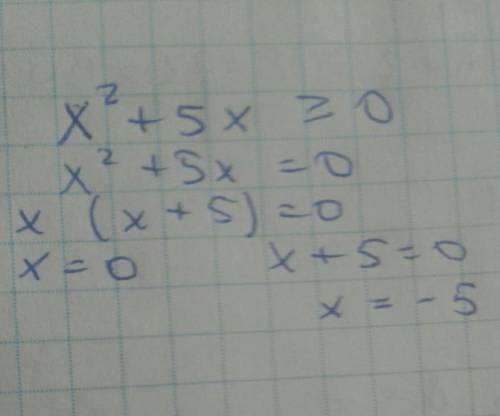 x² + 5x ≥ 0
x² + 5x = 0
x (x + 5) = 0
x = 0 x + 5 = 0
x = - 5